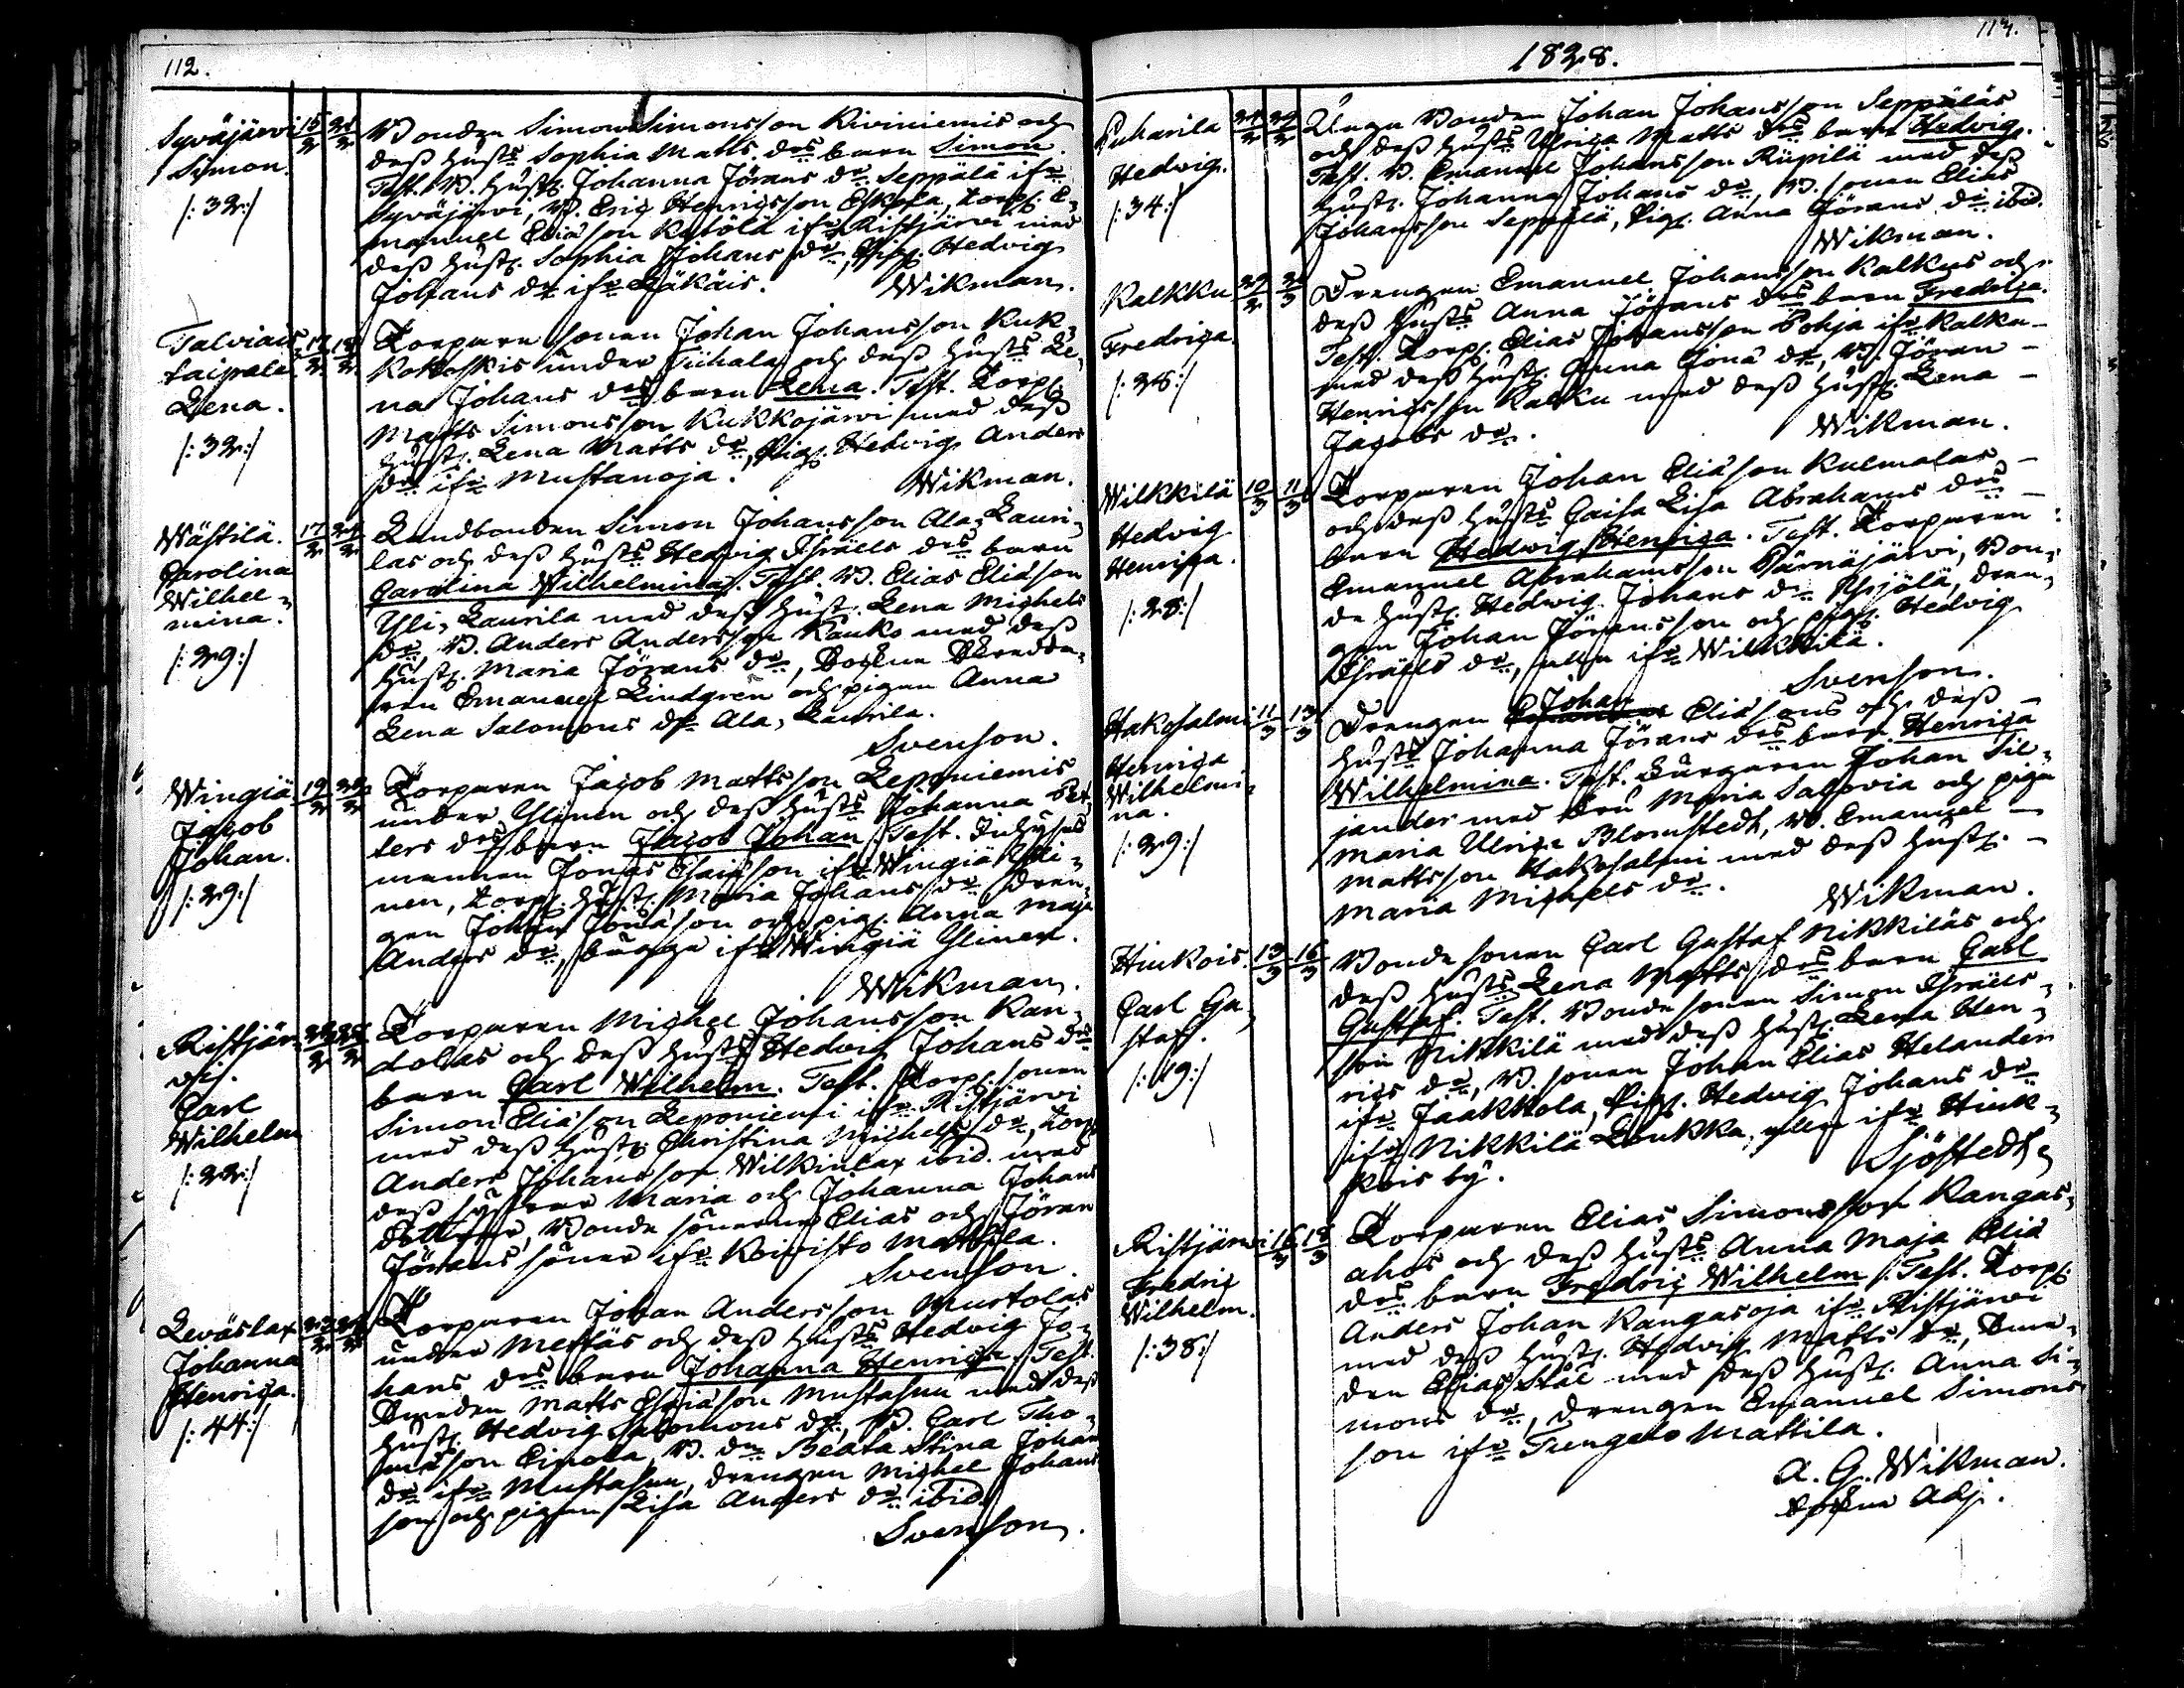 112.
Syväjärvi 15/2 24/2
Simon.
/:32:/
Bonden Simon Simonsson Kiviniemis och
dess Hustrs Sophia Matts drs barn Simon.
Test. B. Hustr. Johanna Jörans dr Seppälä ifr.
Syväjärvi, B. Eric Henricsson Eskola, Torp. E-
manuel Eliæson Ristjärvi med
dess Hust. Sophia Johans dr, Pig. Hedvig
Johans dr ifr. Wikman.
Talviais 17/2 18/2
taipale
Lena.
/:32:/
Torpare sonen Johan Johansson Kuk-
kokoskis under och dess Hustrs Le-
na Johans drs barn Lena. Test. Torp.
Matts Simonsson Kukkojärvi med dess
Hust. Lena Matts dr, Pig. Hedvig Anders
dr ifr. Mustanoja. Wikman.
Wästilä. 17/2 24/2
Carolina
Wilhel-
mina.
/:29:/
Landbonden Simon Johansson Ala-Lauri-
las och dess Hustrs Hedvig Israels drs barn
Carolina Wilhelmina. Test. B. Elias Eliæson
Yli-Laurila med dess Hust. Lena Michels
dr, B. Anders Andersson Kauko med dess
Hust. Maria Jörans dr, Sockne
ren Emanuel Lindgren och pigan Anna
Lena Salomons dr Ala-Laurila.
Svenson.
Wingiä 19/2
Jacob
Johan.
/:29:/
Torparen Jacob Mattsson Leponiemis
under Ylinen och dess Hustrs Johanna Pet-
ters drs barn Jacob Johan. Test. Inhyses
mannen Jonas Esaiæson ifr. Wingiä Yli-
nen, Torp. Hust. Maria Johans dr dren-
gen Johan Jonæson och pig. Anna Maja
Anders dr, begge ifr. Wingiä Ylinen.
Wikman.
Ristjär-
vi.
Carl
Wilhelm
/:22:/
Torparen Michel Johansson Kan-
dolas och dess Hustrs Hedvig Johans drs
barn Carl Wilhelm. Test. Torp. sonen
Simon Eliæson Leponiemi ifr. Ristjärvi
med dess Hust. Christina Michels dr, Torp.
Anders Johansson Wilkinlax ibid. med
dess systrar Maria och Johanna Johans
döttrar, Bonde sönerne Elias och Jöran
Jörans söner ifr. Koivisto Mattila.
Svenson.
Leväslax
Johanna
Henrica.
/:44:/
Torparen Johan Andersson Murtolas
under och dess Hustrs Hedvig Jo-
hans drs barn Johanna Henrica. Test.
Bonden Matts Esaiæson Mustasuu med dess
Hust. Hedvig Salomons dr, B. Carl Tho-
mæson Einola, B. dr. Beata Stina Johans
dr ifr. Mustasuu, drengen Michel Johans
son och pigan Lisa Anders dr ibid.
Svenson.
1828.
113.
Puharila 24/2
Hedvig.
/:34:/
Unga Bonden Johan Johansson Seppäläs
och dess Hustrs Ulrica Matts drs barn Hedvig.
Test. B. Emanuel Johansson Rüpilä med dess
Hust. Johanna Johans dr, B. sonen Elias
Johansson Seppälä, Pig. Anna Jörans dr ibid.
Wikman.
Kalkku 29/2 2/3
Fredrica
Drengen Emanuel Johansson Kalkus och
dess Hustrs Anna Jörans drs barn Fredrica.
Test. Torp. Elias Johansson Pohja ifr. Kalku-
med dess Hust. Anna Jonæ dr, B. Jöran-
Henricsson Kalku med dess Hust. Lena-
Jacobs dr. Wikman.
Wilkkilä 10/3 11/3
Hedvig
Henrica.
/:28:/
Torparen Johan Eliæson Kulmalas-
och dess Hustrs Caisa Lisa Abrahams drs-
barn Hedvig Henrica. Test. Torparen
Emanuel Abrahamsson Pärnäjärvi, Bon-
de Hust. Hedvig Johans dr dren-
gen Johan Jöransson och pig. Hedvig
Israels dr, alla ifr. Wilkkilä.
Svenson.
Hakosalmi 11/3 13/3
Henrica
Wilhelmi-
na.
/:29:/
Drengen Johan Eliæsons och dess-
Hustrs Johanna Jörans drs barn Henrica
Wilhelmina. Test. Borgaren Johan Sil-
jander med Fru Maria Salovia och piga
Maria Ulrica Blomstedt, B. Emanuel-
Mattsson Hakosalmi med dess Hust.-
Maria Michels dr. Wikman.
Hinkois 13/3 16/3
Carl Gu-
staf.
/:19:/
Bonde sonen Carl Gustaf Nikkiläs och
dess Hustrs Lena Matts drs barn Carl
Gustaf. Test. Bonde sonen Simon Israels-
son Nikkilä med dess Hust. Lena Hen-
rics dr, B. sonen Johan Elias Helander
ifr. Jaakkola, Pig. Hedvig Johans dr
ifr. Nikkilä Loukka, alla ifr. Hink-
kois by. Sjöstedt
Ristjärvi 16/3 18/3
Fredric
Wilhelm.
/:38:/
Torparen Elias Simonsson Kangas-
ahos och dess Hustrs Anna Maja Eliæ
drs barn Fredric Wilhelm. Test. Torp.
Anders Johan Kangasoja ifr. Ristjärvi
med dess Hust. Hedvig Matts dr,
den Elias Stål med dess Hust. Anna Si-
mons dr, drengen Emanuel Simons
son ifr. Tungelo Mattila.
A. G. Wikman.
Sockne Adj.